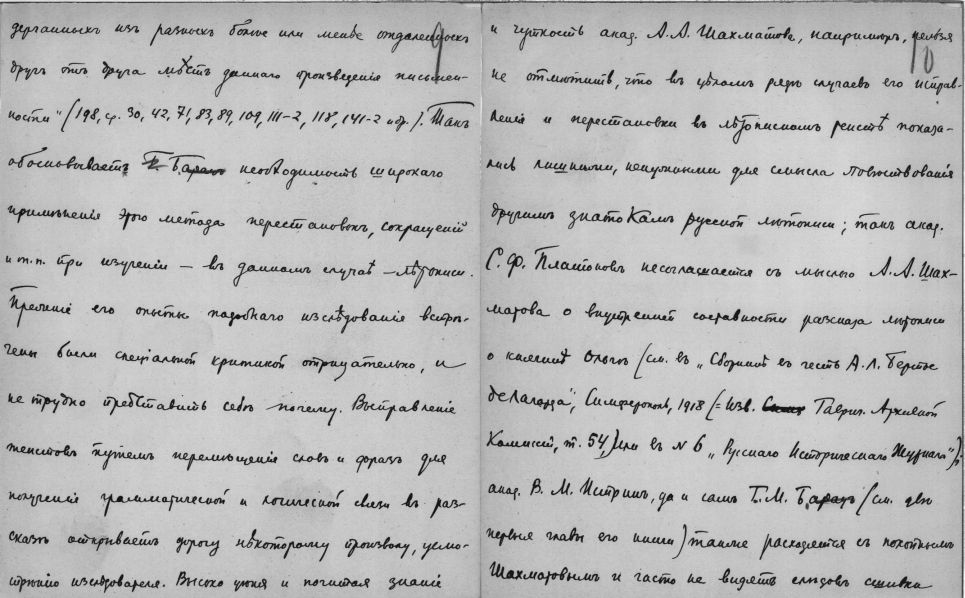 дерганныхъ изъ разныхъ болѣе или менѣе отдаленныхъ
другъ отъ друга мѣстъ даннаго произведенія письмен-
ности" (198, ср. 30, 42, 71, 83, 89, 109, 111-2, 118, 141-2 и др.). Такъ
обосновываетъ Б. необходимость широкаго
примѣненія этого метода перестановокъ, сокращеній
и т.п. при изученіи — въ данномъ случаѣ — лѣтописи.
Прежніе его опыты подобнаго изслѣдованія встрѣ-
чены были спеціальной критикой отрицательно, и
не трудно представить себѣ почему. Выправленіе
текстовъ путемъ перемѣщенія словъ и фразъ для
полученія грамматической и логической связи въ раз-
сказѣ открываетъ дорогу нѣкоторому произволу, усмо-
трѣнію изслѣдователя. Высоко цѣня и почитая знаніе
10
и чуткость акад. А.А. Шахматова, напримѣръ, нельзя
не отмѣтить, что въ цѣломъ рядѣ случаевъ его исправ-
ленія и перестановки въ лѣтописномъ текстѣ показа-
лись лишними, ненужными для смысла повѣствованія
другимъ знатокамъ русской лѣтописи; такъ акад.
С.Ф. Платоновъ несоглашается съ мыслью А.А. Шах-
матова о внутренней составности разсказа лѣтописи
о княгинѣ Ольгѣ (см. въ „Сборникѣ въ честь А.Л. Бертье
Делагарда", Симферополь, 1918 (= Изв. Таврич. Архивной
Комиссіи, т. 54,) или въ № 6 „Русскаго Историческаго Журнала");
акад. В.М. Истринъ, да и самъ Б.М. (см. двѣ
первыя главы его книги) также расходятся съ покойнымъ
Шахматовымъ и часто не видятъ слѣдовъ сшивки